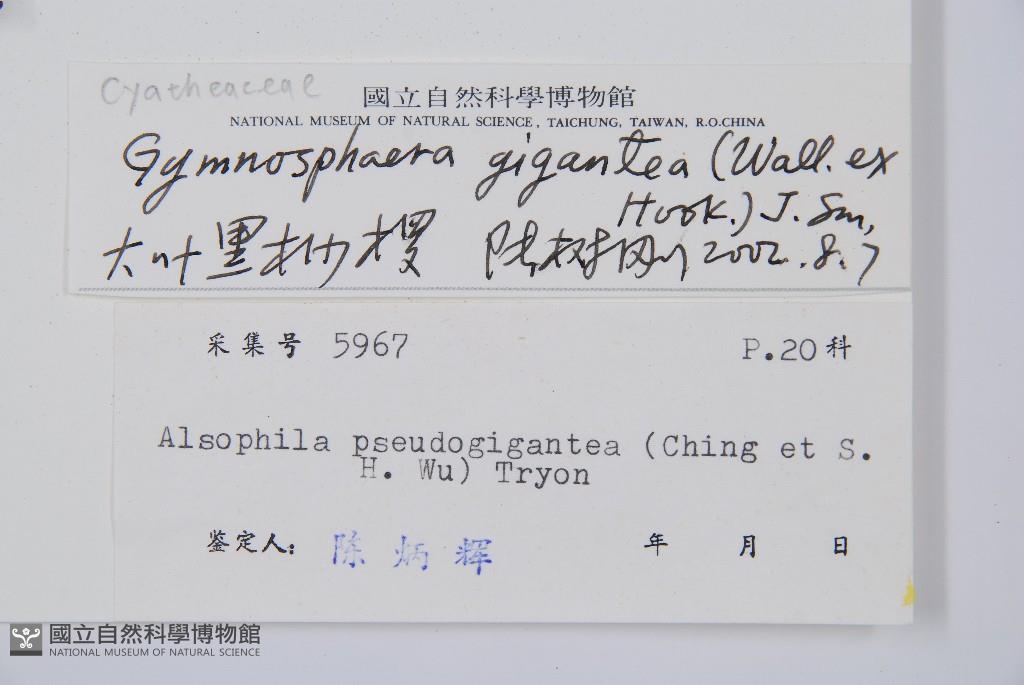 Cyatheaceae
國立自然科學博物館
NATIONAL MUSEUM OF NATURAL SCIENCE, TAICHUNG, TAIWAN, R.O.CHINA
Gymnosphaera gigantea (Wall. ex
Hook.) J. Sm,
大叶黑桫椤 陈树刚 2002.8.7
采集号 5967 P.20科
Alsophila pseudogigantea (Ching et S.
H. Wu) Tryon
鉴定人: 陈炳辉 年 月 日
國立自然科學博物館
NATIONAL MUSEUM OF NATURAL SCIENCE